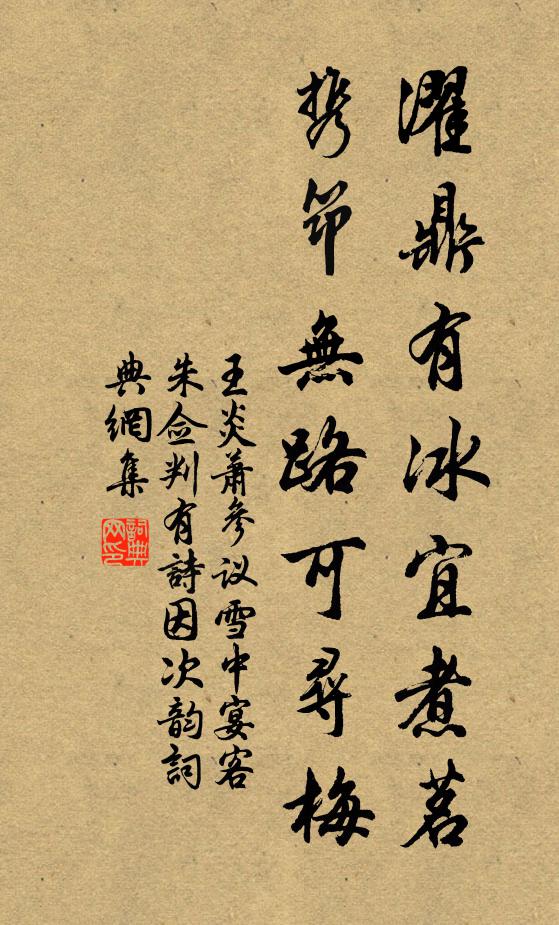 濯鼎有冰宜煮茗
携筇無路可尋梅
王炎蕭參议雪中宴客
朱佥判有詩因次韵詞
典網集
詞典
网印